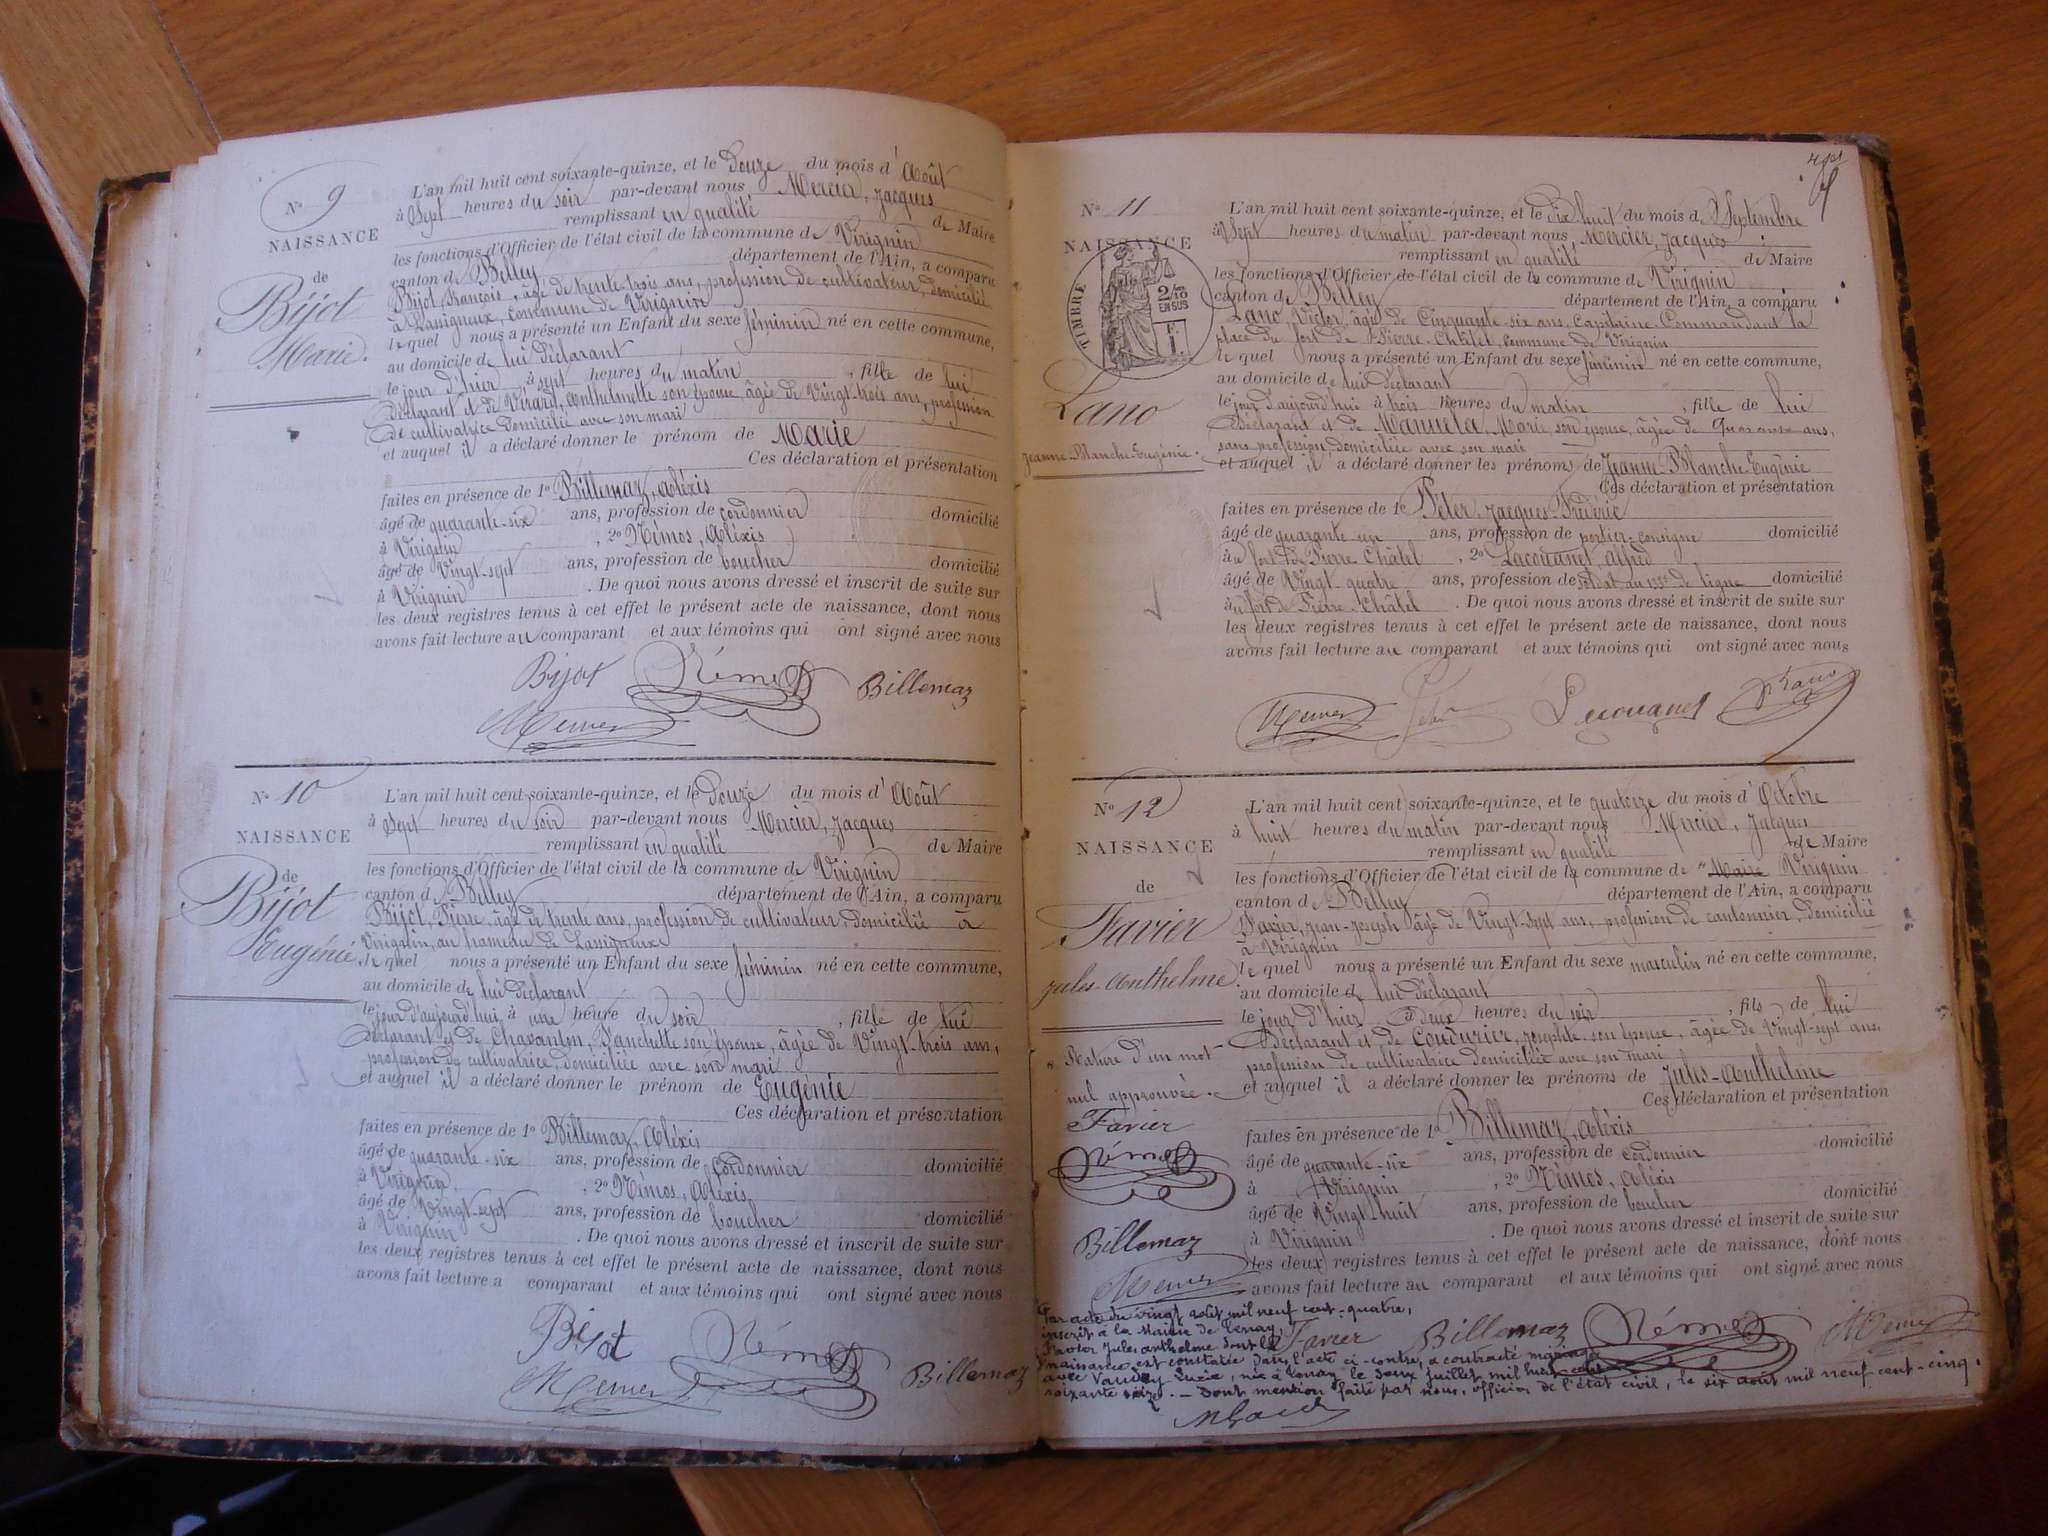 N° 9
NAISSANCE
de
Bijot
Marie.
L'an mil huit cent soixante-quinze, et le Douze du mois d'Août
à Sept heures du soir par-devant nous Mercier, Jacques
remplissant en qualité de Maire
les fonctions d'Officier de l'état civil de la commune de Virignin
canton de Belley département de l'Ain, a comparu
Bijot, François, âgé de trente-trois ans, profession de cultivateur, domicilié
à Lassigneux, commune de Virignin
le quel nous a présenté un Enfant du sexe féminin né en cette commune,
au domicile de lui déclarant
le jour d'hier, à sept heures du matin, fille de lui
déclarant et de Virard, Anthelmette son épouse âgée de Vingt-trois ans, profession
de cultivatrice domiciliée avec son mari
et auquel il a déclaré donner le prénom de Marie
Ces déclaration et présentation
faites en présence de 1° Billemaz, Aléxis
âgé de quarante-six ans, profession de cordonnier domicilié
à Virignin, 2° Némos, Aléxis
âgé de Vingt-sept ans, profession de boucher domicilié
à Virignin. De quoi nous avons dressé et inscrit de suite sur
les deux registres tenus à cet effet le présent acte de naissance, dont nous
avons fait lecture au comparant et aux témoins qui ont signé avec nous
Bijot Némos Billemaz
Mercier
N° 10
NAISSANCE
de
Bijot
Eugénie
L'an mil huit cent soixante-quinze, et le Douze du mois d'Août
à Sept heures du soir par-devant nous Mercier, Jacques
remplissant en qualité de Maire
les fonctions d'Officier de l'état civil de la commune de Virignin
canton de Belley département de l'Ain, a comparu
Bijot, Pierre, âgé de trente ans, profession de cultivateur, domicilié à
Virignin, au hameau de Lassigneux
le quel nous a présenté un Enfant du sexe féminin né en cette commune,
au domicile de lui déclarant
le jour d'aujourd'hui, à une heure du soir, fille de lui
déclarant et de Chavanton, Fanchette son épouse, âgée de Vingt-trois ans,
profession de cultivatrice, domiciliée avec son mari
et auquel il a déclaré donner le prénom de Eugénie
Ces déclaration et présentation
faites en présence de 1° Billemaz, Aléxis
âgé de quarante-six ans, profession de cordonnier domicilié
à Virignin, 2° Némos, Aléxis
âgé de Vingt-sept ans, profession de boucher domicilié
à Virignin. De quoi nous avons dressé et inscrit de suite sur
les deux registres tenus à cet effet le présent acte de naissance, dont nous
avons fait lecture a comparant et aux témoins qui ont signé avec nous
Bijot Némos
Mercier Billemaz
N° 11
NAISSANCE
TIMBRE
2/10
EN SUS
Lano
Jeanne-Blanche-Eugénie.
L'an mil huit cent soixante-quinze, et le dix huit du mois de Septembre
à Sept heures du matin par-devant nous, Mercier, Jacques
remplissant en qualité de Maire
les fonctions d'Officier de l'état civil de la commune de Virignin
canton de Belley département de l'Ain, a comparu
Lano, Victor, âgé de Cinquante-six ans, Capitaine Commandant la
place du fort de Pierre-Châtel, commune de Virignin
le quel nous a présenté un Enfant du sexe féminin né en cette commune,
au domicile de lui déclarant
le jour d'aujourd'hui à trois heures du matin, fille de lui
déclarant et de Manuela Marie, son épouse, âgée de Quarante ans,
sans profession, domiciliée avec son mari
et auquel il a déclaré donner les prénoms de Jeanne-Blanche Eugénie
Ces déclaration et présentation
faites en présence de 1° Péter, Jacques Frédéric
âgé de quarante un ans, profession de portier-consigne domicilié
au fort de Pierre Châtel, 2° Lacouanet, Alfred
âgé de Vingt quatre ans, profession de soldat au de ligne domicilié
au fort de Pierre-Châtel. De quoi nous avons dressé et inscrit de suite sur
les deux registres tenus à cet effet le présent acte de naissance, dont nous
avons fait lecture au comparant et aux témoins qui ont signé avec nous
Mercier Péter Lano
N° 12
NAISSANCE
de
Favier
Jules-Anthelme.
L'an mil huit cent soixante-quinze, et le quatorze du mois d'Octobre
à huit heures du matin par-devant nous Mercier, Jacques
remplissant en qualité de Maire
les fonctions d'Officier de l'état civil de la commune de Maire Virignin
canton de Belley département de l'Ain, a comparu
Favier, Jean-Joseph âgé de Vingt-sept ans, profession de cantonnier, domicilié
à Virignin
le quel nous a présenté un Enfant du sexe masculin né en cette commune,
au domicile de lui déclarant
le jour d'hier, à deux heures du soir, fils de lui
déclarant et de Coudurier, Josephte son épouse, âgée de Vingt-sept ans,
profession de cultivatrice domiciliée avec son mari
et auquel il a déclaré donner les prénoms de Jules-Anthelme
Ces déclaration et présentation
faites en présence de 1° Billemaz, Aléxis
âgé de quarante-six ans, profession de cordonnier domicilié
à Virignin, 2° Némos, Aléxis
âgé de Vingt-huit ans, profession de boucher domicilié
à Virignin. De quoi nous avons dressé et inscrit de suite sur
les deux registres tenus à cet effet le présent acte de naissance, dont nous
avons fait lecture au comparant et aux témoins qui ont signé avec nous
Favier Billemaz Némos Mercier
Rature d'un mot
nul approuvée.
Favier
Némos
Billemaz
Mercier
Par acte du vingt août mil neuf cent-quatre,
inscrit à la Mairie de Tenay,
Favier Jules Anthelme dont la
naissance est constatée dans l'acte ci-contre, a contracté mariage
avec Vaudey Lucie, née à Tenay le deux juillet mil huit cent
soixante seize. — Dont mention faite par nous, officier de l'état civil, le six août mil neuf-cent-cinq.